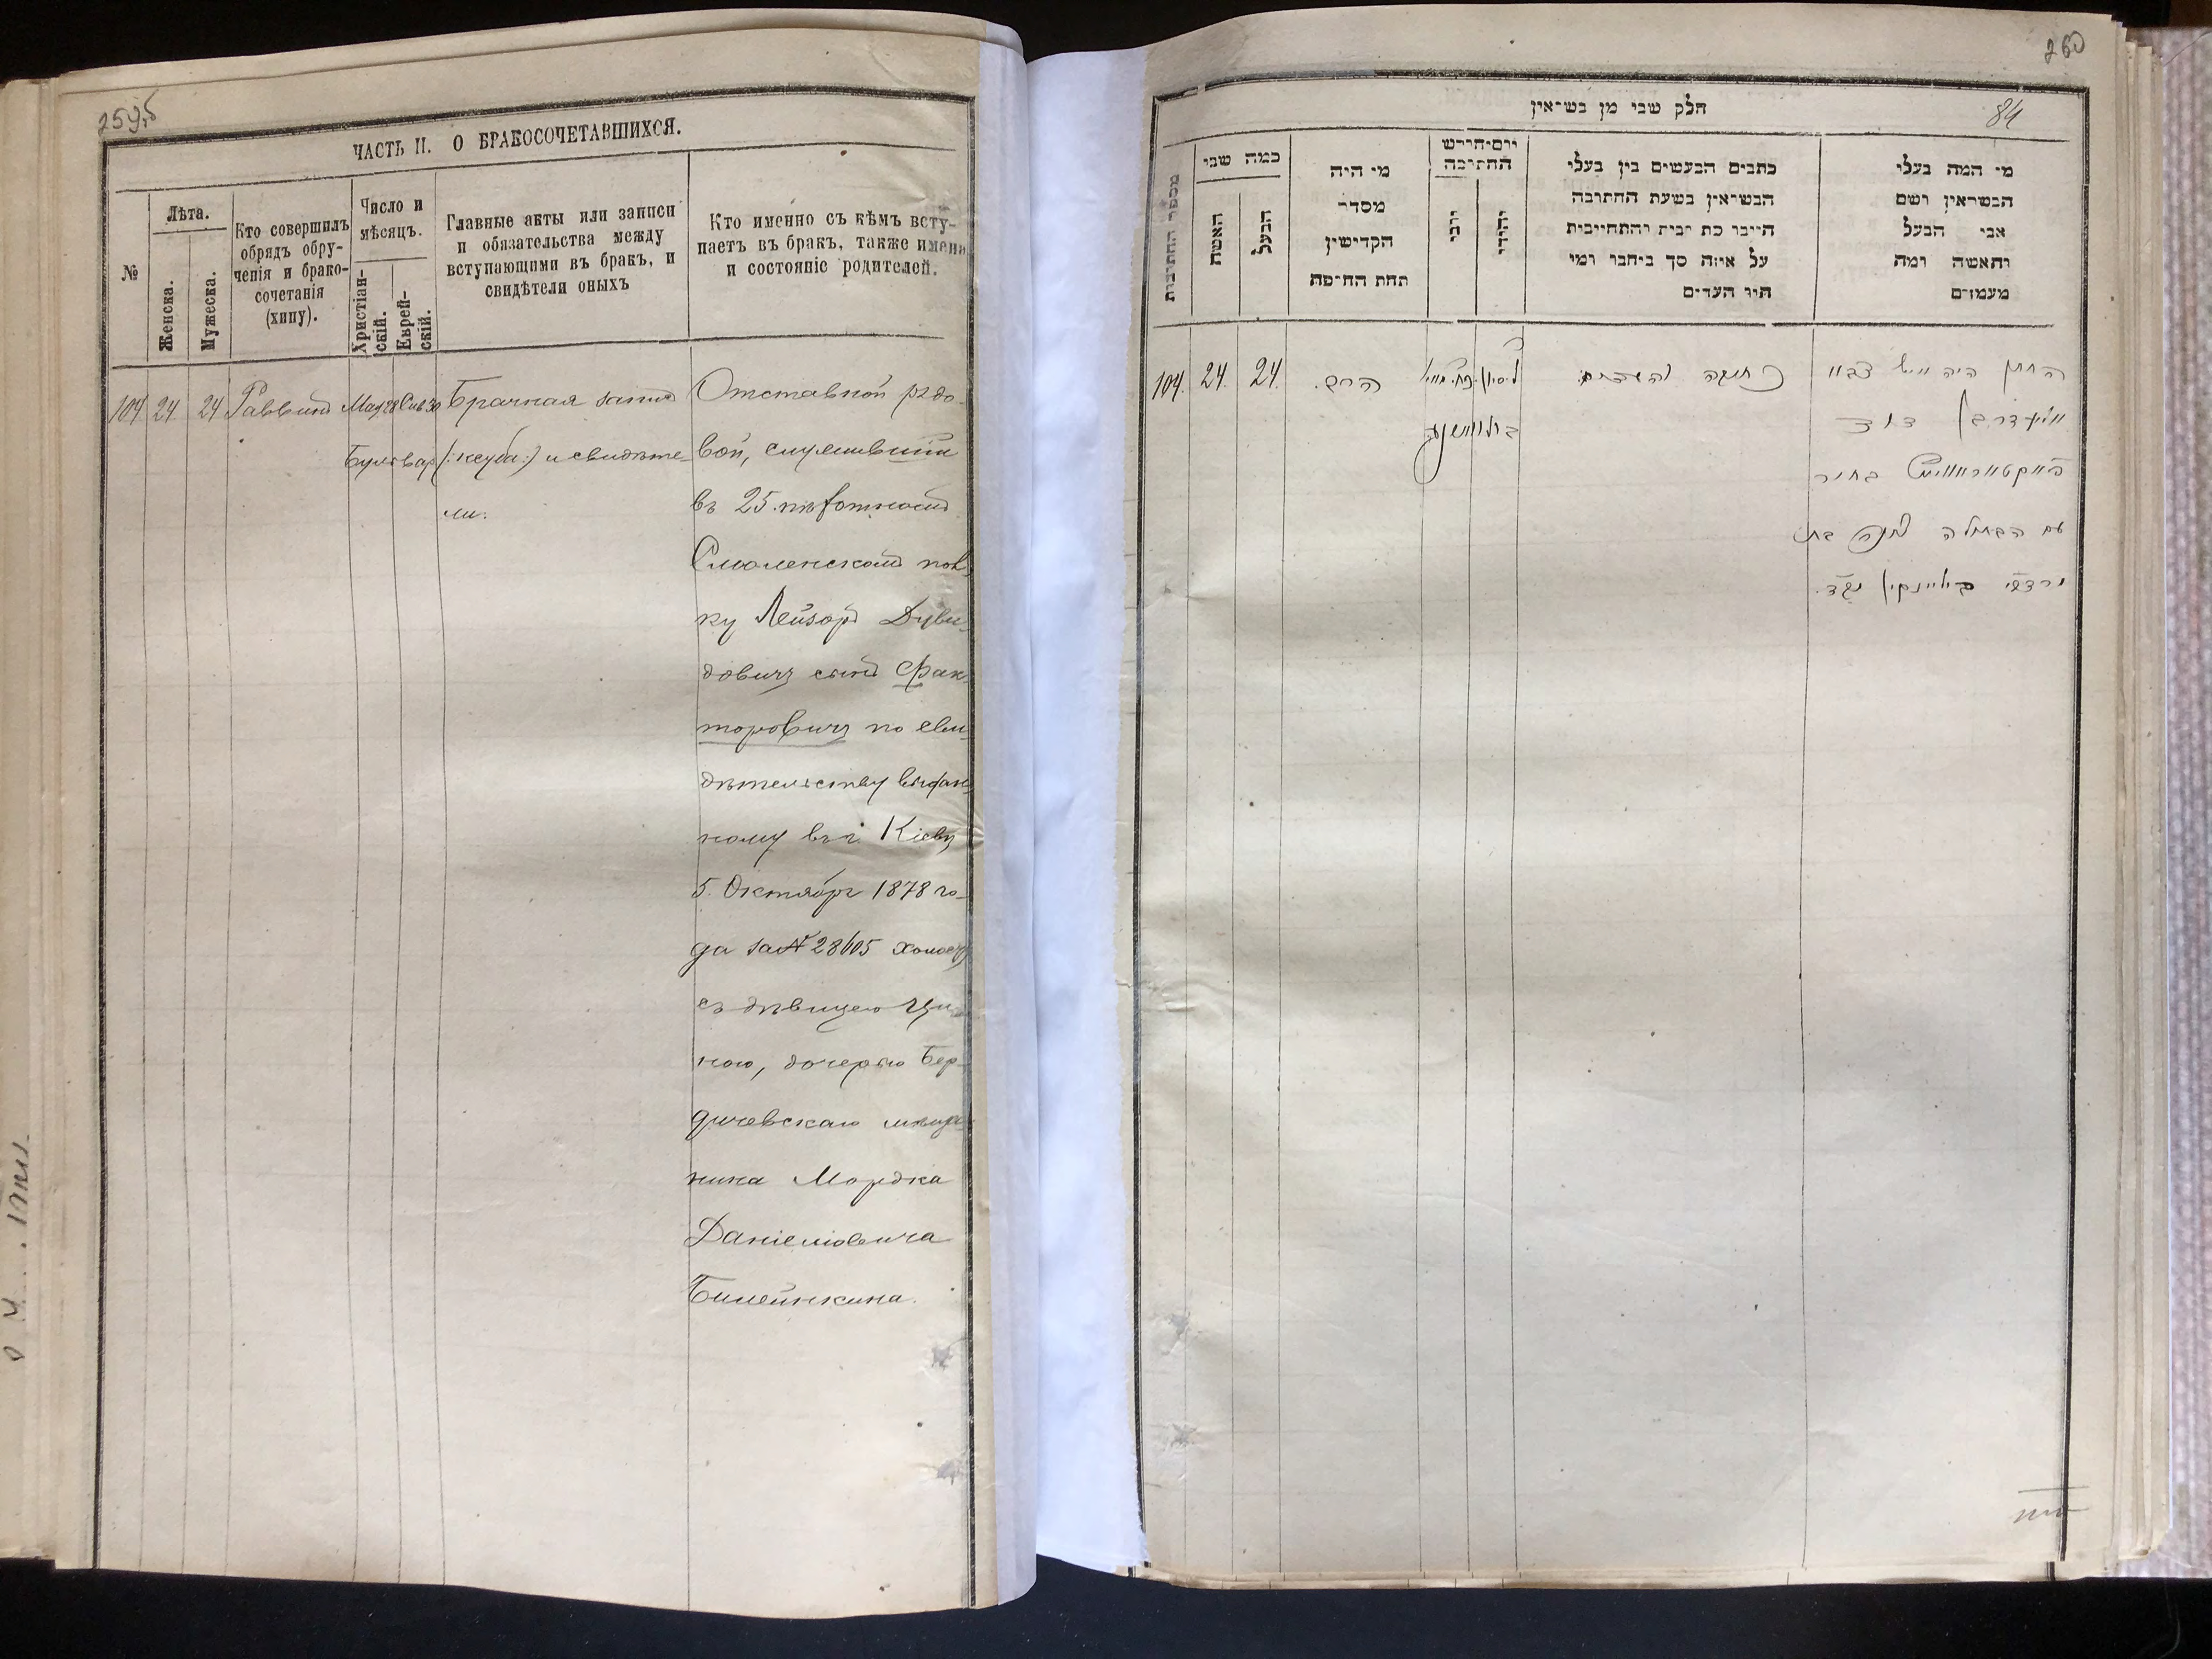 259б
ЧАСТЬ II. О БРАКОСОЧЕТАВШИХСЯ.
№
Лѣта.
Женска.
Мужеска.
Кто совершилъ
обрядъ обру-
ченія и брако-
сочетанія
(хипу).
Число и
мѣсяцъ.
Христіан-
скій.
Еврей-
скій.
Главные акты или записи
и обязательства между
вступающими въ бракъ, и
свидѣтели оныхъ
Кто именно съ кѣмъ всту-
паетъ въ бракъ, также имена
и состояніе родителей.
104 24 24 Раввинъ
Мая 28
Сив 30
Бульвар
Брачная запись
(:ксуба:) и свидѣте-
ли.
Отставной рядо-
вой, служившій
въ 25. пѣхотномъ
Смоленскомъ пол-
ку Лейзоръ Дуви-
довичъ сынъ Фак-
торовичъ по сви-
дѣтельству выдан-
ному въ г. Кіевѣ
5. Октября 1878 го-
да за № 28605 холост
съ дѣвицею
ною, дочерью Бер-
дичевскаго мѣща-
нина Мордка
Даніеліовича
Билейнкина.
260
84
חלק שני מן נשואין
מספר החתונות
כמה שני
האשה
הבעל
מי היה
מסדר
הקדישין
תחת החופה
יום וחודש
החתונה
יוני
יהודי
כתבים הנעשים בין בעלי
הנשואין בשעת החתונה
היינו כת ובית והתחייבות
על איזה סך ביחבו ומי
היו העדים
מי המה בעלי
הנשואין ושם
אבי הבעל
והאשה ומה
מעמדם
104. 24. 24.
הרב.
ל סיון
כתובה והעדים
החתן היה איש צבא
דוד
פאקטאראוויטש בחור
עם הבתולה בת
מרדכי ביליינקין